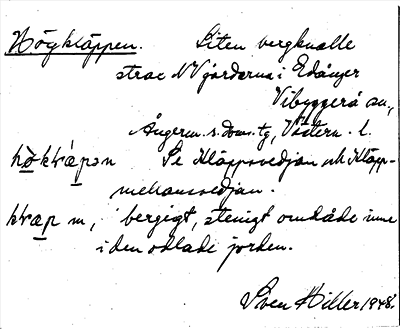 Högkläppen. Liten bergknalle
strax NV gårdarna i Edånger
Vibyggerå sn,
Ångerm. s. doms. tg, Västern. l.
Se Kläppsvedjan och Kläpp-
bergigt, stenigt område inne
i den odlade jorden.
Sven Hiller 1948.